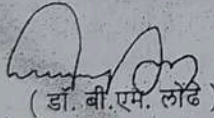 ( डॉ. बी.एम. लोढे )